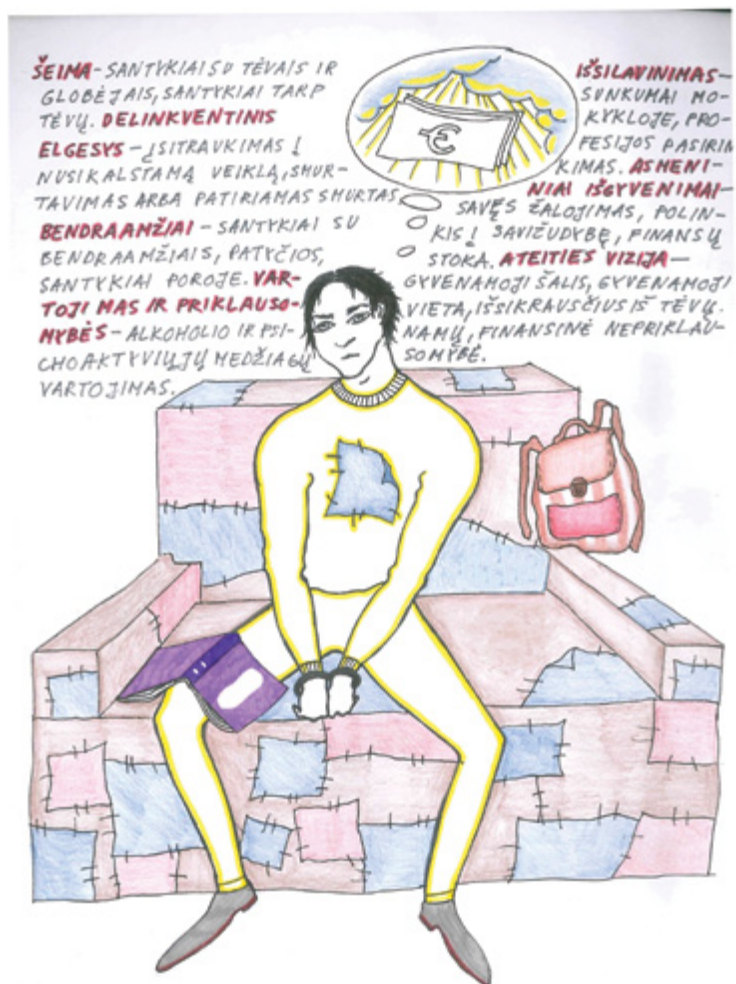 ŠEIMA - SANTYKIAI SU TĖVAIS IR
GLOBĖJAIS, SANTYKIAI TARP
TĖVŲ. DELINKVENTINIS
ELGESYS - ĮSITRAUKIMAS Į
NUSIKALSTAMĄ VEIKLĄ, SMUR-
TAVIMAS ARBA PATIRIAMAS SMURTAS.
BENDRAAMŽIAI - SANTYKIAI SU
BENDRAAMŽIAIS, PATYČIOS,
SANTYKIAI POROJE. VAR-
TOJIMAS IR PRIKLAUSO-
MYBĖS - ALKOHOLIO IR PSI-
CHOAKTYVIŲJŲ MEDŽIAGŲ
VARTOJIMAS.
€
IŠSILAVINIMAS -
SUNKUMAI MO-
KYKLOJE, PRO-
FESIJOS PASIRIN
KIMAS. ASMENI-
NIAI IŠGYVENIMAI -
SAVĘS ŽALOJIMAS, POLIN-
KIS Į SAVIŽUDYBĘ, FINANSŲ
STOKA. ATEITIES VIZIJA -
GYVENAMOJI ŠALIS, GYVENAMOJI
VIETA, IŠSIKRAUSČIUS IŠ TĖVŲ.
NAMŲ, FINANSINĖ NEPRIKLAU-
SOMYBĖ.